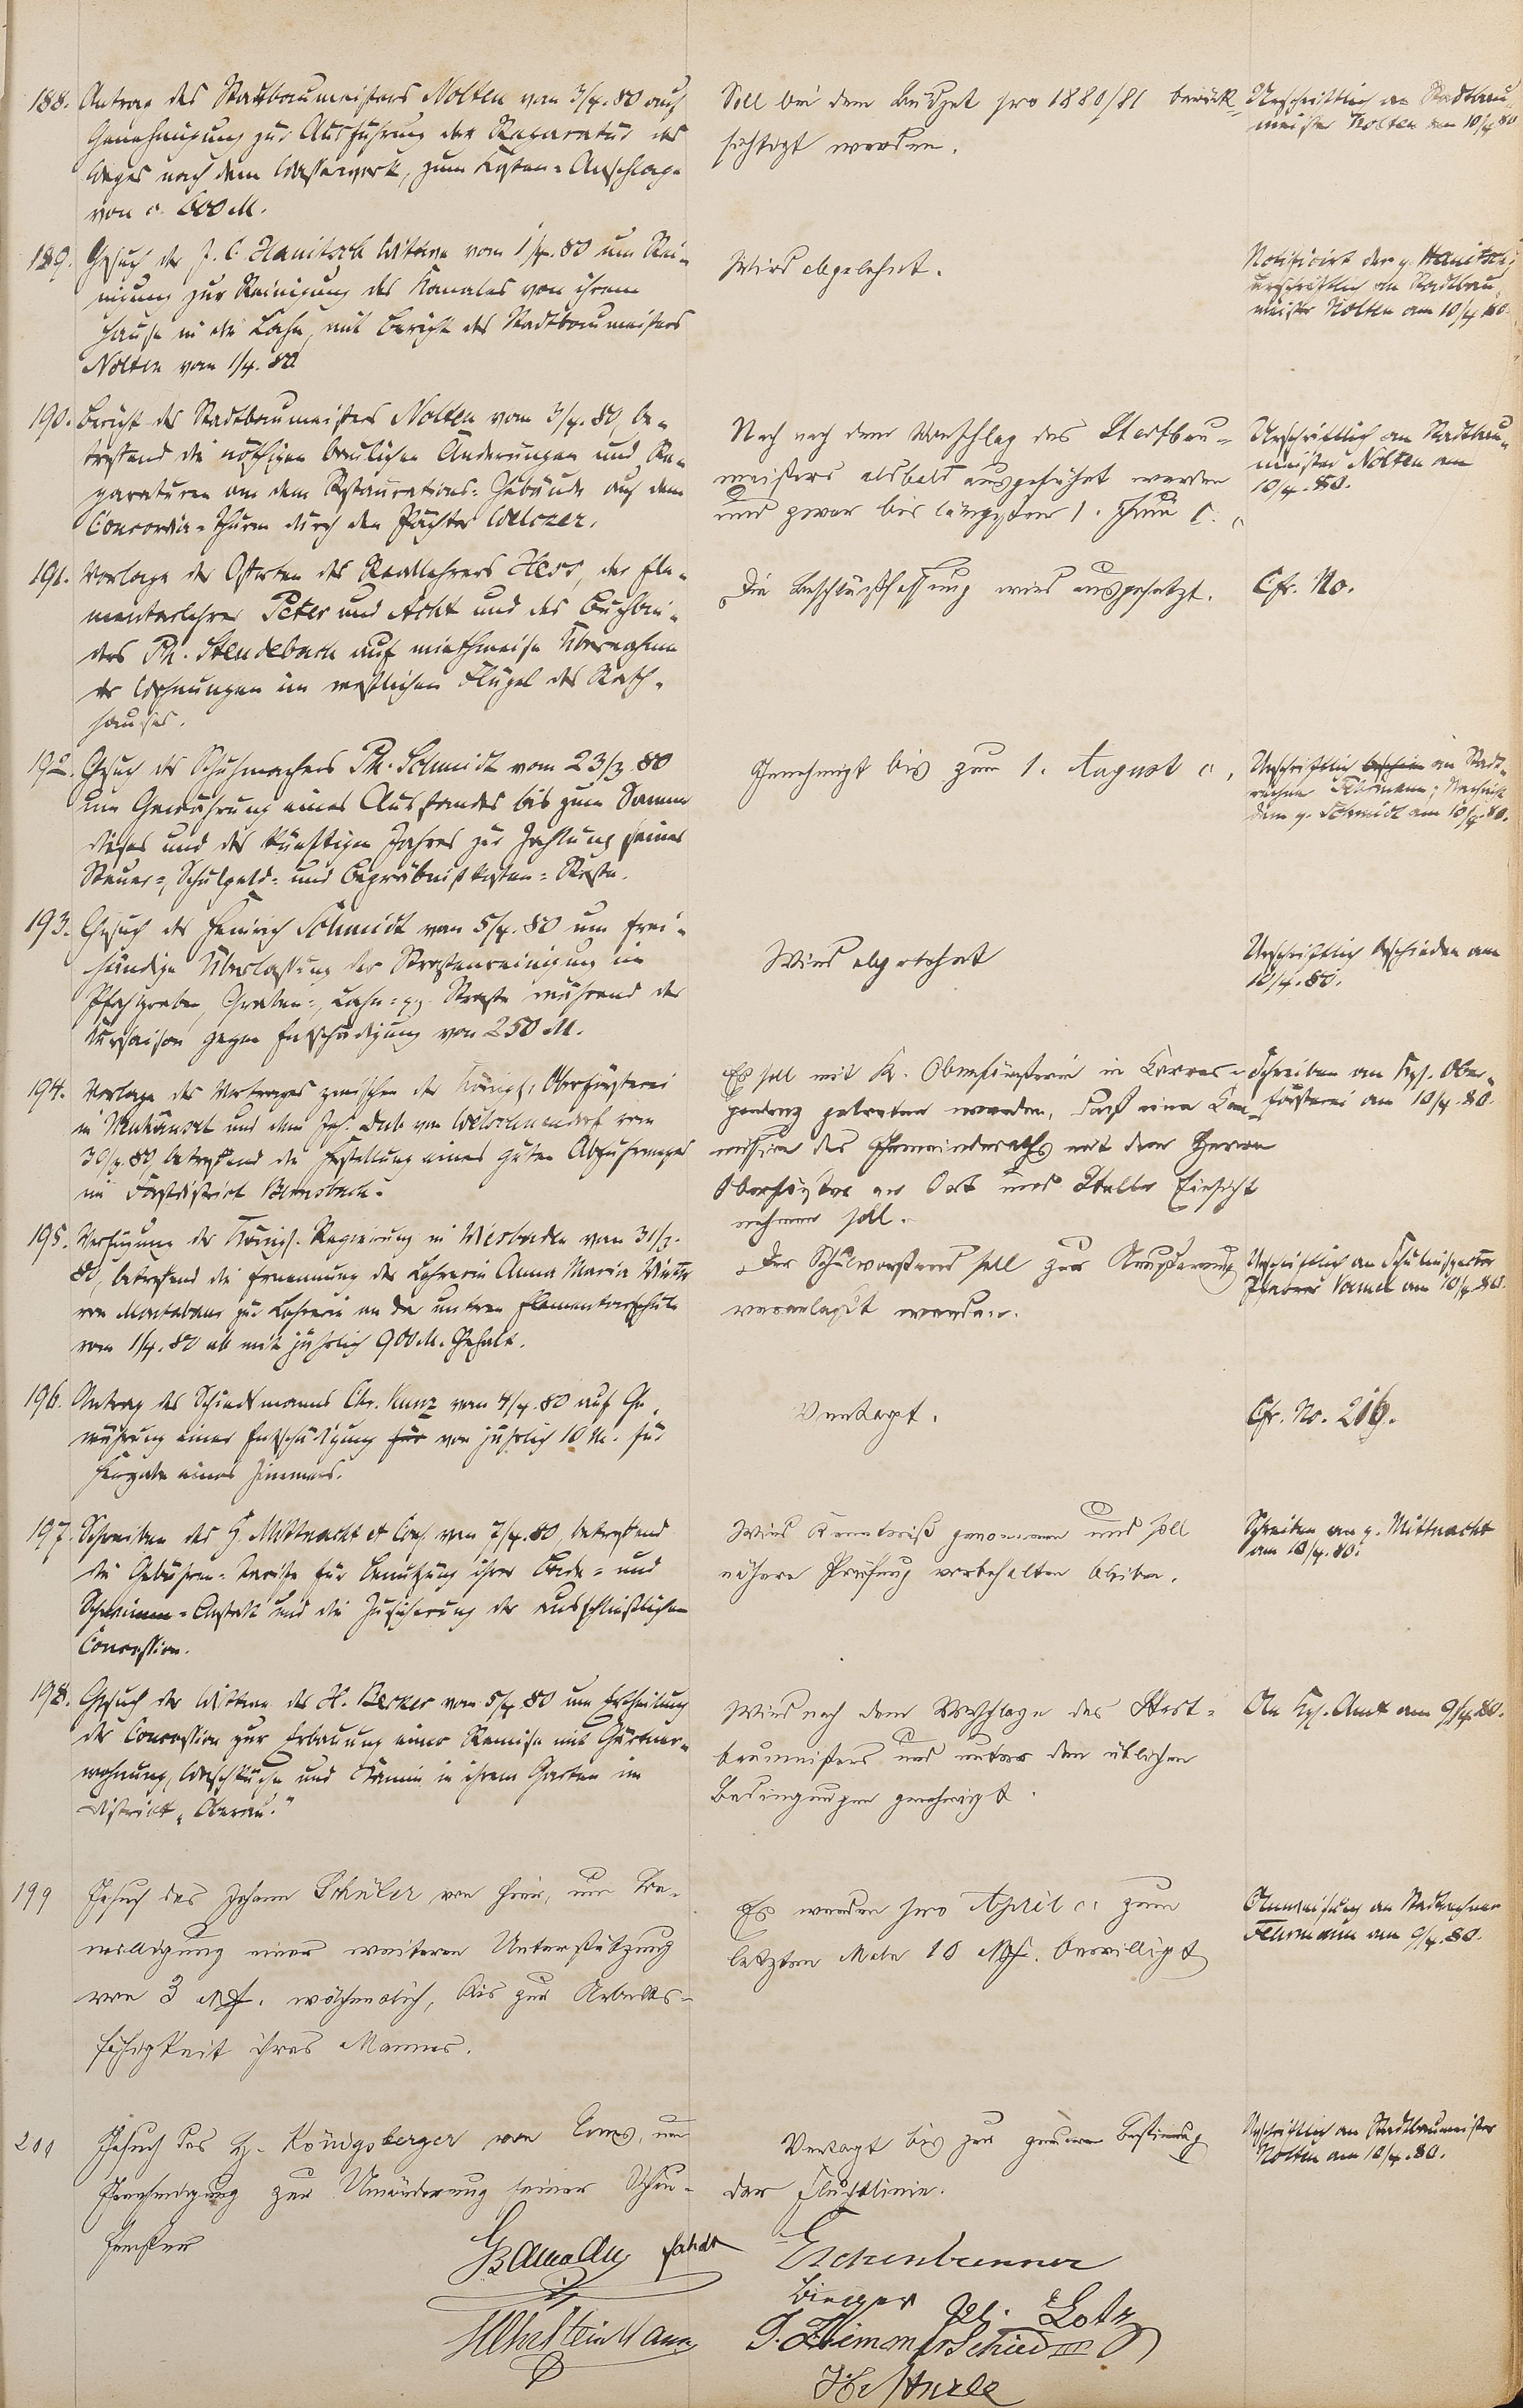 188. Antrag des Stadtbaumeisters Nolten vom 3/4. 80 auf
Genehmigung zur Ausführung der Reparatur des
Weges nach dem Wasserwerk, zum Kosten-Anschlage
von c. 600 M.
Soll bei dem Budget pro 1880/81 berück-
sichtigt werden.
Urschriftlich an Stadtbau-
meister Nolten am 10/4 80
189. Gesuch der J. C. Hanitsch Wittwe vom 1/4. 80 um
zur Reinigung des Kanales von ihrem
Hause in die Lahn, mit Bericht des Stadtbaumeisters
Nolten vom 1/4. 80
Wird abgelehnt.
Notificirt der p. Hanitsch;
urschriftlich an Stadtbau-
meister Nolten am 10/4 80.
190. Bericht des Stadtbaumeisters Nolten vom 3/4. 80, be-
treffend die nöthigen baulichen Änderungen und Re-
paraturen an dem Restaurations-Gebäude auf dem
Concordia-Thurm durch den Pächter Welczer.
Nach dem Vorschlag des Stadtbau-
meisters alsbald ausgeführt werden
und zwar bis längstens 1. Juni c.
Urschriftlich an Stadtbau-
meister Nolten am
10/4. 80.
191. Vorlage der Offerten des Reallehrers Hess, der Ele-
mentarlehrer Peter und Acht und des Buchbin-
ders Ph. Stendebach auf miethweise Übernahme
der Wohnungen im westlichen Flügel des Rath-
hauses.
Die Beschlußfassung wird ausgesetzt.
Cfr. No.
192. Gesuch des Schuhmachers Ph. Schmidt vom 23/3 80
um Gewährung eines Ausstandes bis zum Sommer
dieses und des künftigen Jahres zur Zahlung seiner
Steuer-, Schulgeld- und Begräbnißkosten-Reste.
Genehmigt bis zum 1. August c.
Urschriftlich an Stadt-
rechner Fuhrmann; Nachricht
dem p. Schmidt am 10/4. 80.
193. Gesuch des Heinrich Schmidt vom 5/4. 80 um frei-
händige Überlassung der Straßenreinigung im
Pfahlgraben, Graben-, Lahn- pp. Straße während der
Kursaison gegen Entschädigung von 250 M.
Wird abgelehnt
Urschriftlich beschieden am
10/4. 80.
194. Vorlage des Vertrages zwischen der Königl. Oberförsterei
in Neuhäusel und dem Jos. von Welschneudorf vom
30/3. 80 betreffend die Herstellung eines guten Abfuhrweges
im Forstdistrict
Es soll mit K. Oberförsterei in Corres-
pondenz getreten werden, daß eine Com-
mission des Gemeinderaths mit dem Herrn
Oberförster an Ort und Stelle Einsicht
nehmen soll.
Schreiben an Kgl. Ober-
försterei am 10/4. 80.
195. Verfügung der Königl. Regierung in Wiesbaden vom 31/3.
80, betreffend die Ernennung der Lehrerin Anna Maria
von Montabaur zur Lehrerin an der unteren Elementarschule
vom 1/4. 80 ab mit jährlich 900 M. Gehalt.
Der Schulvorstand soll zur Aeußerung
veranlaßt werden.
Urschriftlich an Schulinspector
Pfarrer Vömel am 10/4. 80.
196. Antrag des Schiedsmanns Chr. Kunz vom 4/4. 80 auf Ge-
währung einer Entschädigung für von jährlich 10 M. für
Hergabe eines Zimmers.
Vertagt.
Cfr. No. 216.
197. Schreiben des H. Mittnacht et Cons. vom 7/4. 80, betreffend
die Gebühren-Tarife für Benutzung ihrer Bade- und
Schwimm-Anstalt und die Zusicherung der ausschließlichen
Concession.
Wird Kenntniß genommen und soll
nähere Prüfung vorbehalten bleiben.
Schreiben an p. Mittnacht
am 10/4. 80.
198. Gesuch der Wittwe des H. Becker vom 5/4 80 um Ertheilung
der Concession zur Erbauung einer Remise mit Gärtner-
wohnung, Waschküche und Kamin in ihrem Garten im
District „Oberau."
Wird nach dem Vorschlage des Stadt-
baumeisters und unter den üblichen
Bedingungen genehmigt.
An Kgl. Amt am 9/4. 80.
199 Gesuch des Johann Schüler von hier, um Be-
willigung einer weiteren Unterstützung
von 3 Mk. wöchentlich, bis zur Arbeits-
fähigkeit ihres Mannes.
Es werden pro April c. zum
letzten Male 10 Mk. bewilligt
Anweisung an Stadtrechner
Fuhrmann am 9/4. 80.
200 Gesuch des H. Königsberger von Ems, um
Genehmigung zur Umänderung seiner Schau-
fenster
Vertagt bis zur genauen Bestimmung
der Fluchtlinie.
Urschriftlich an Stadtbaumeister
Nolten am 10/4. 80.
Eschenbrenner
Bieger Ph. Lotz
Wilh. Steinmann